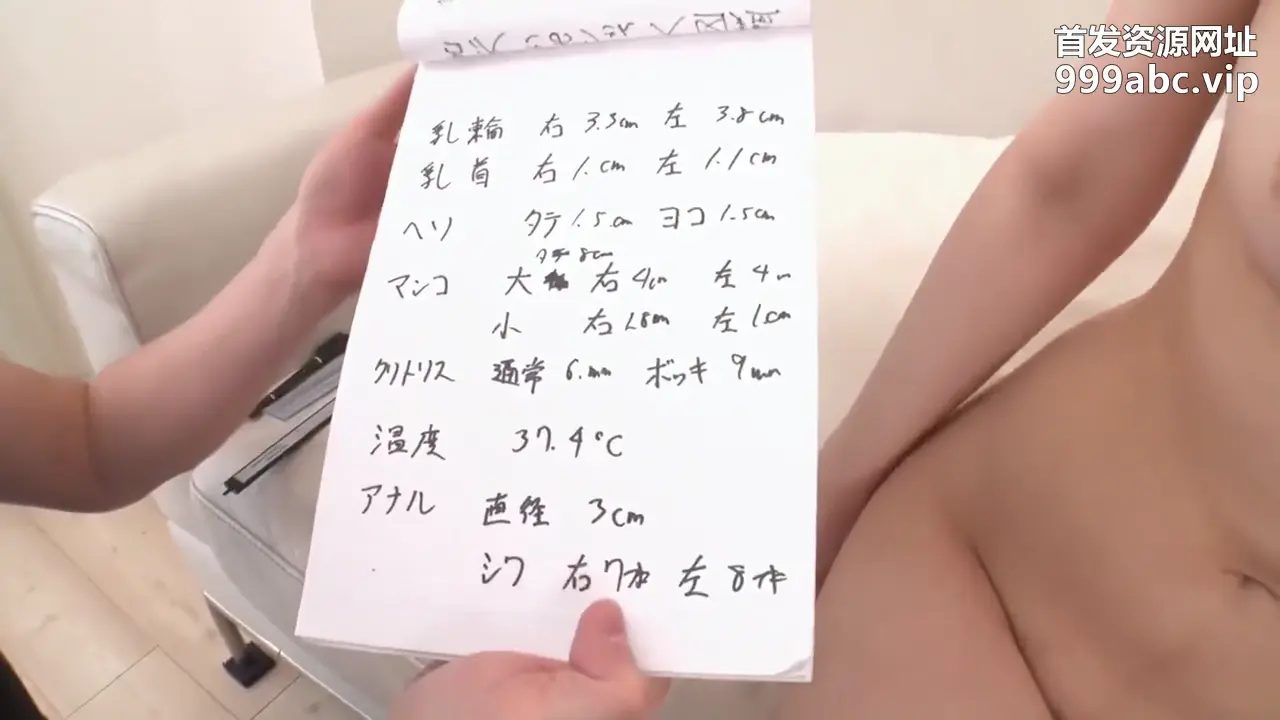 首发资源网址
999abc.vip
乳輪 右 3.3cm 左 3.8cm
乳首 右 1.cm 左 1.1cm
ヘソ タテ 1.5cm ヨコ 1.5cm
タテ 8cm
マンコ 大 右 4cm 左 4cm
小 右 1.8cm 左 1cm
クリトリス 通常 6.mm ボッキ 9mm
温度 37.4℃
アナル 直径 3cm
シワ 右 7本 左 8本